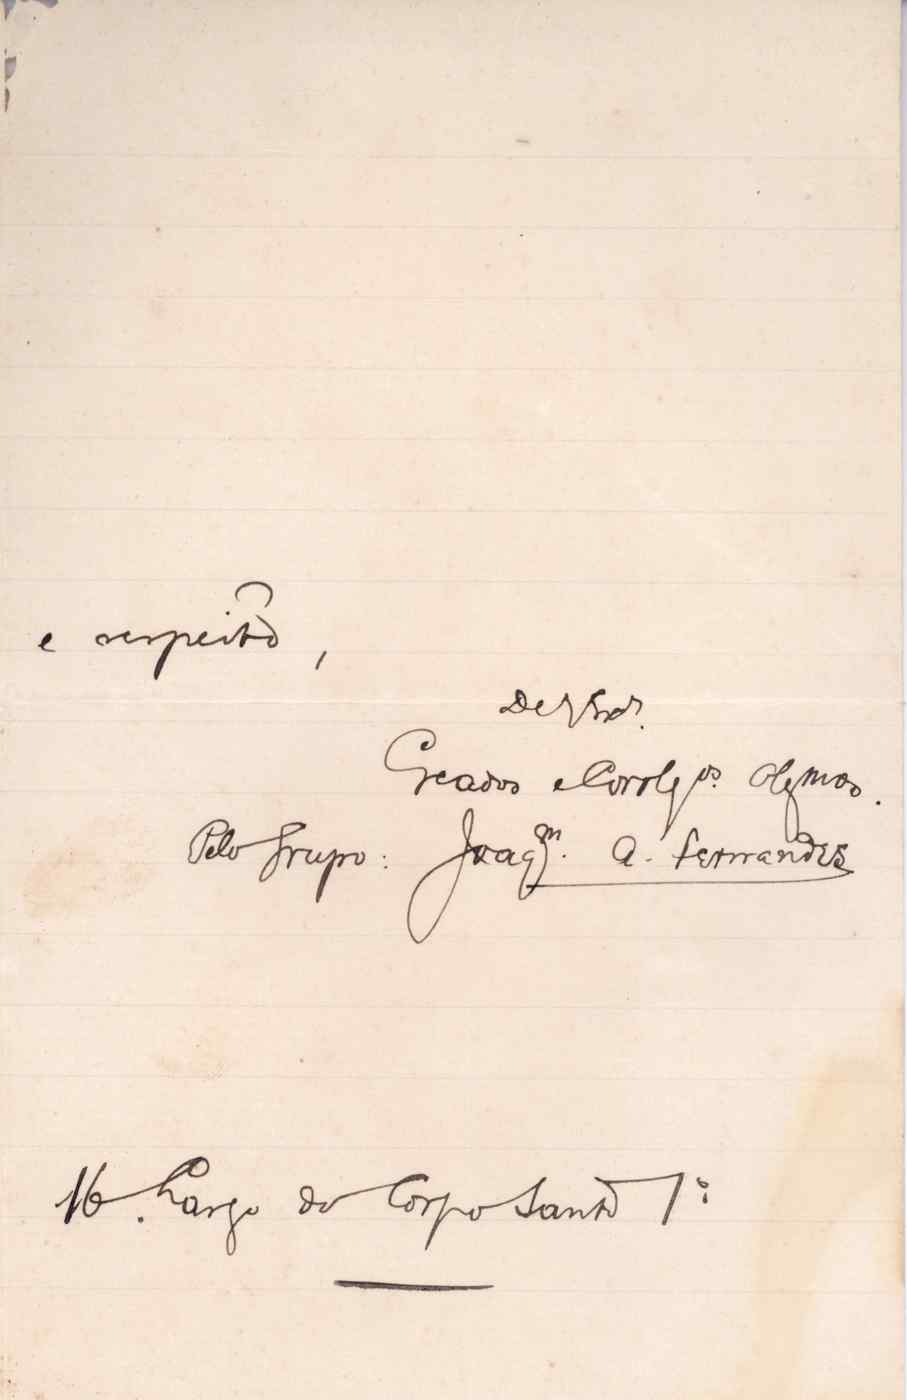 e respeito,
De V. Exas.
Creados e Correlgos. Obgmos.
Pelo Grupo: Joaqm. A. Fernandes
16. Largo do Corpo Santo 1º